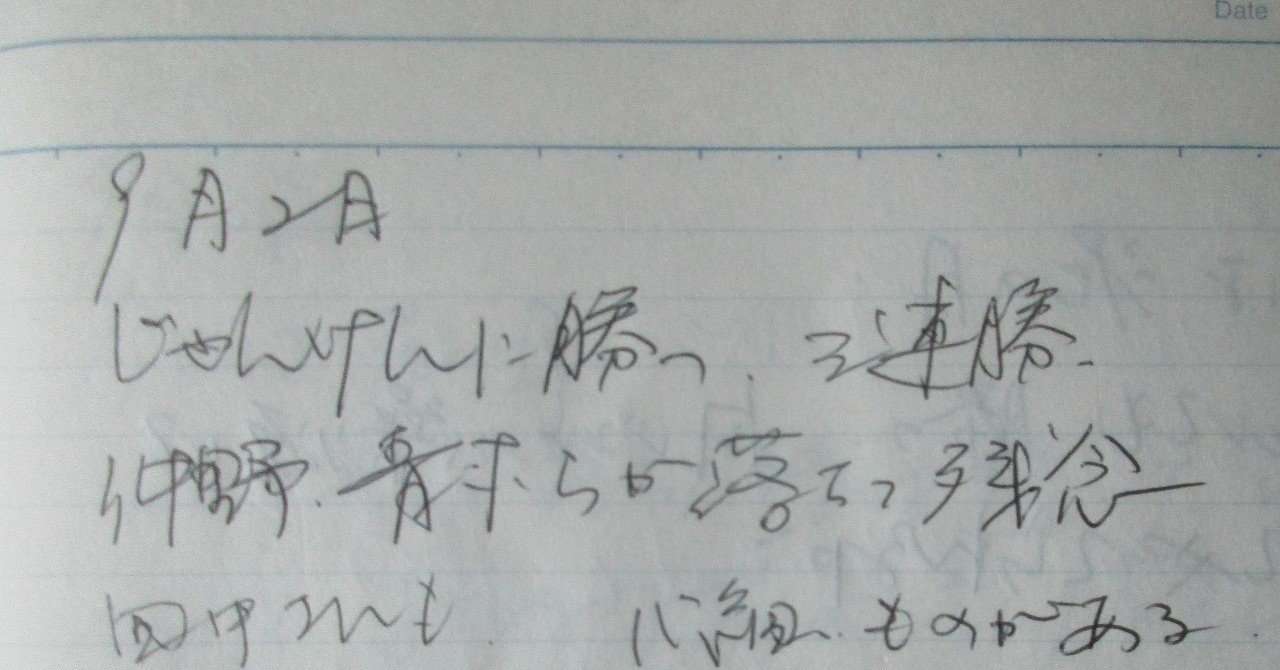 Date
9月2日
じゃんけんに勝つ、3連勝、
仲野、青木らが落ちて残念
田中さんも、心細いものがある